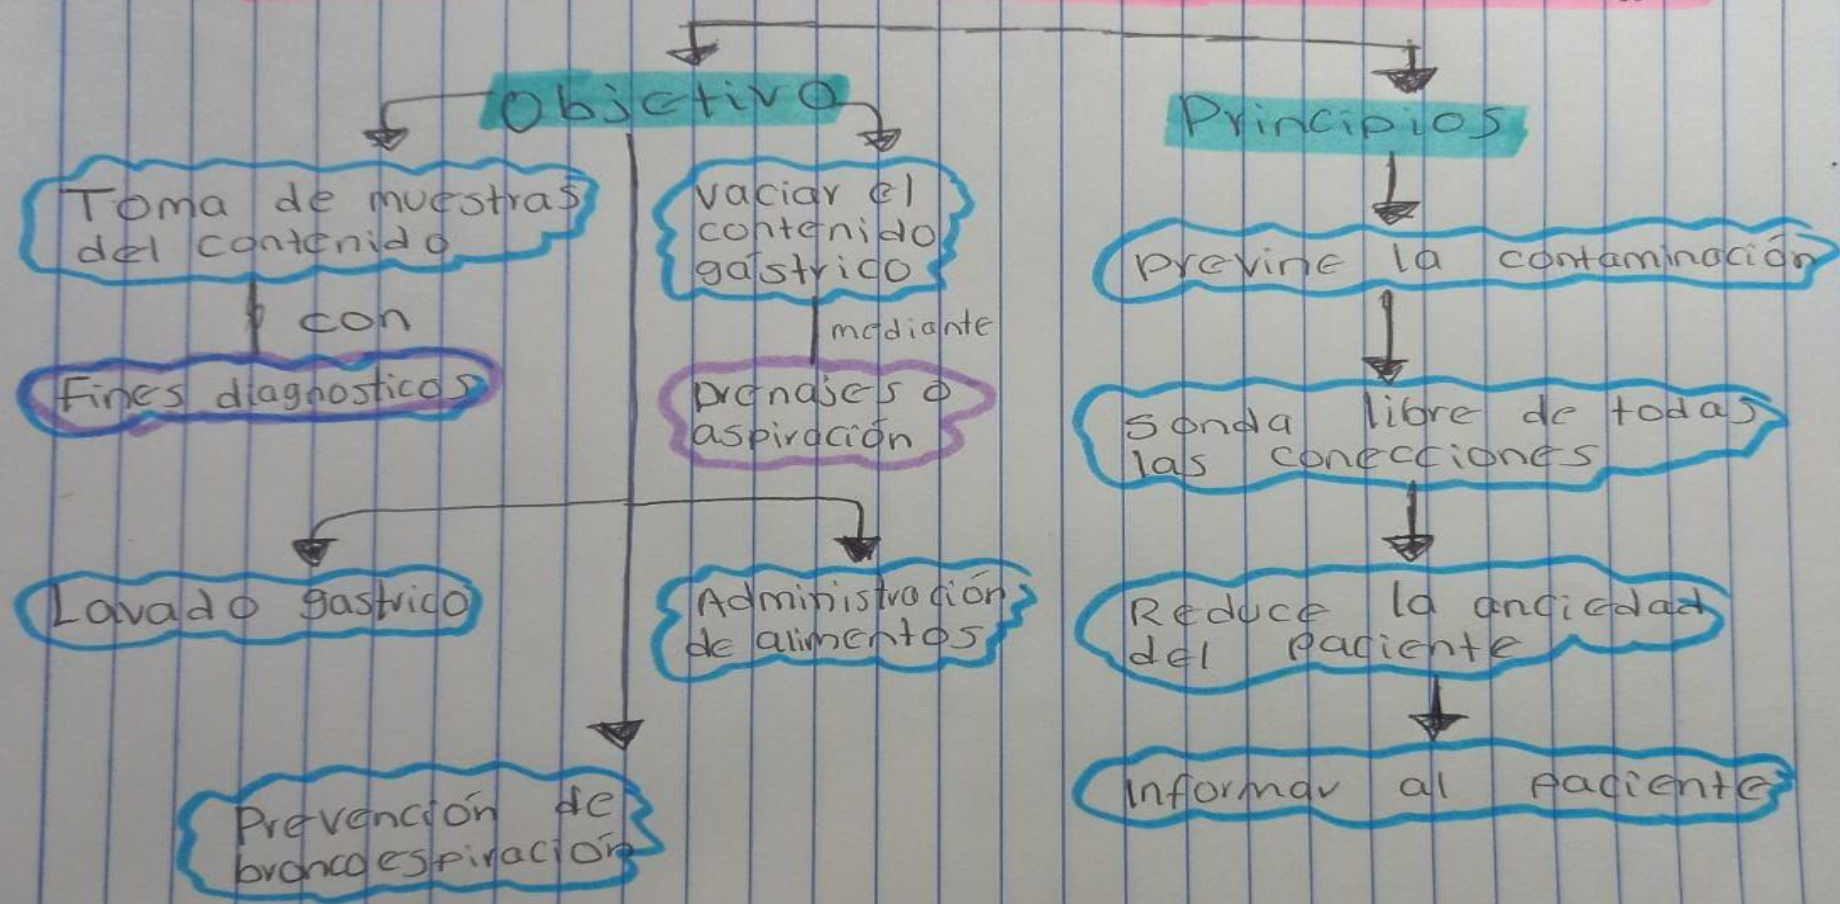 Objetivo
Principios
Toma de muestras
del contenido
con
Fines diagnosticos
vaciar el
contenido
gástrico
mediante
Drenajes o
aspiración
Lavado gastrico
Administración
de alimentos
Prevención de
broncoespiración
previne la contaminación
sonda libre de todas
las conecciones
Reduce la anciedad
del paciente
informar al paciente